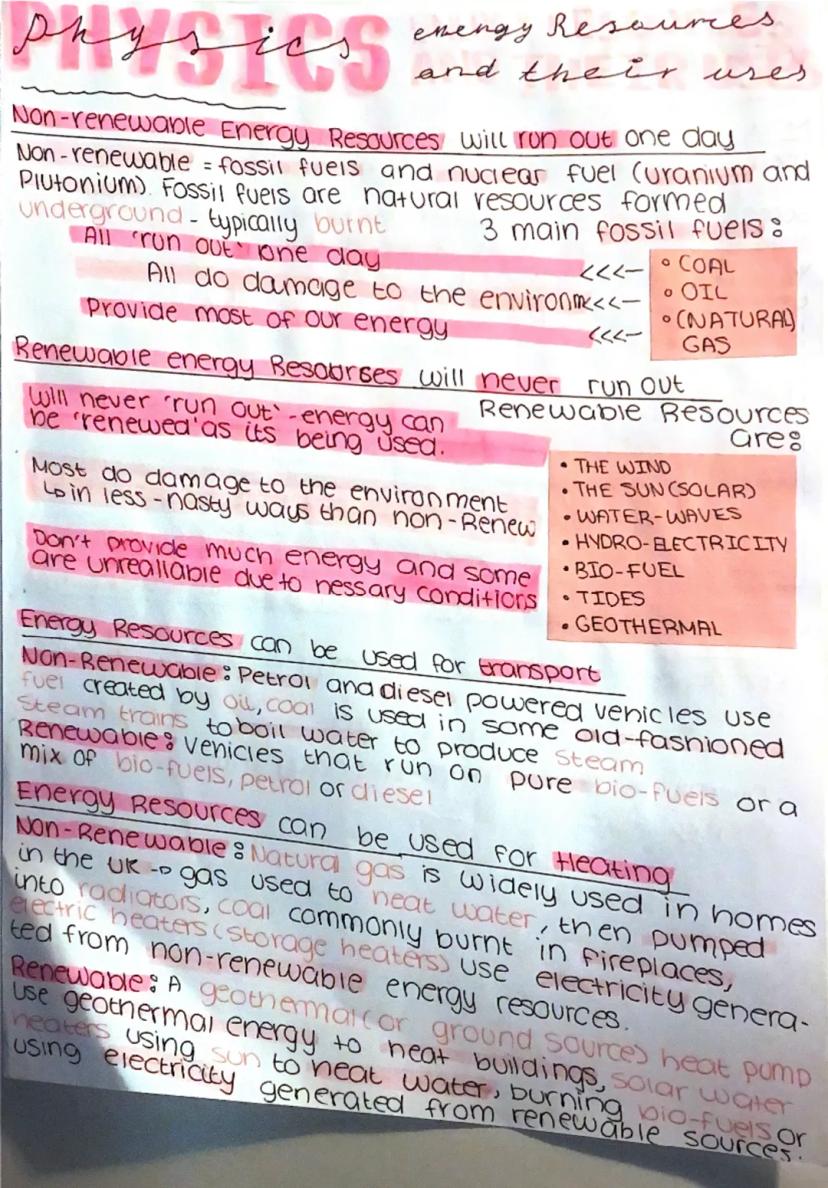 PHYSICS
physics
energy Resources
and their uses
Non-renewable Energy Resources will run out one day
Non-renewable = fossil fuels and nuclear fuel (uranium and
Plutonium). Fossil fuels are natural resources formed
underground - typically burnt
3 main fossil fuels:
All 'run out' one day
<<<- • COAL
All do damage to the environm<<<- • OIL
Provide most of our energy <<<- • (NATURAL)
GAS
Renewable energy Resourses will never run out
Will never 'run out' - energy can
be 'renewed' as its being used.
Renewable Resources
are:
Most do damage to the environment
↳in less-nasty ways than non-Renew
Don't provide much energy and some
are unreallable due to nessary conditions
• THE WIND
• THE SUN (SOLAR)
• WATER-WAVES
• HYDRO-ELECTRICITY
• BIO-FUEL
• TIDES
• GEOTHERMAL
Energy Resources can be used for transport
Non-Renewable: Petrol and diesel powered vehicles use
fuel created by oil, coal is used in some old-fashioned
Steam trains to boil water to produce steam
Renewable: Vehicles that run on pure bio-fuels or a
mix of bio-fuels, petrol or diesel
Energy Resources can be used for Heating
Non-Renewable: Natural gas is widely used in homes
in the UK → gas used to heat water, then pumped
into radiators, coal commonly burnt in fireplaces,
electric heaters (storage heaters) use electricity genera-
ted from non-renewable energy resources.
Renewable: A geothermal (or ground source) heat pump
use geothermal energy to heat buildings, solar water
heaters using sun to heat water, burning bio-fuels or
using electricity generated from renewable sources.